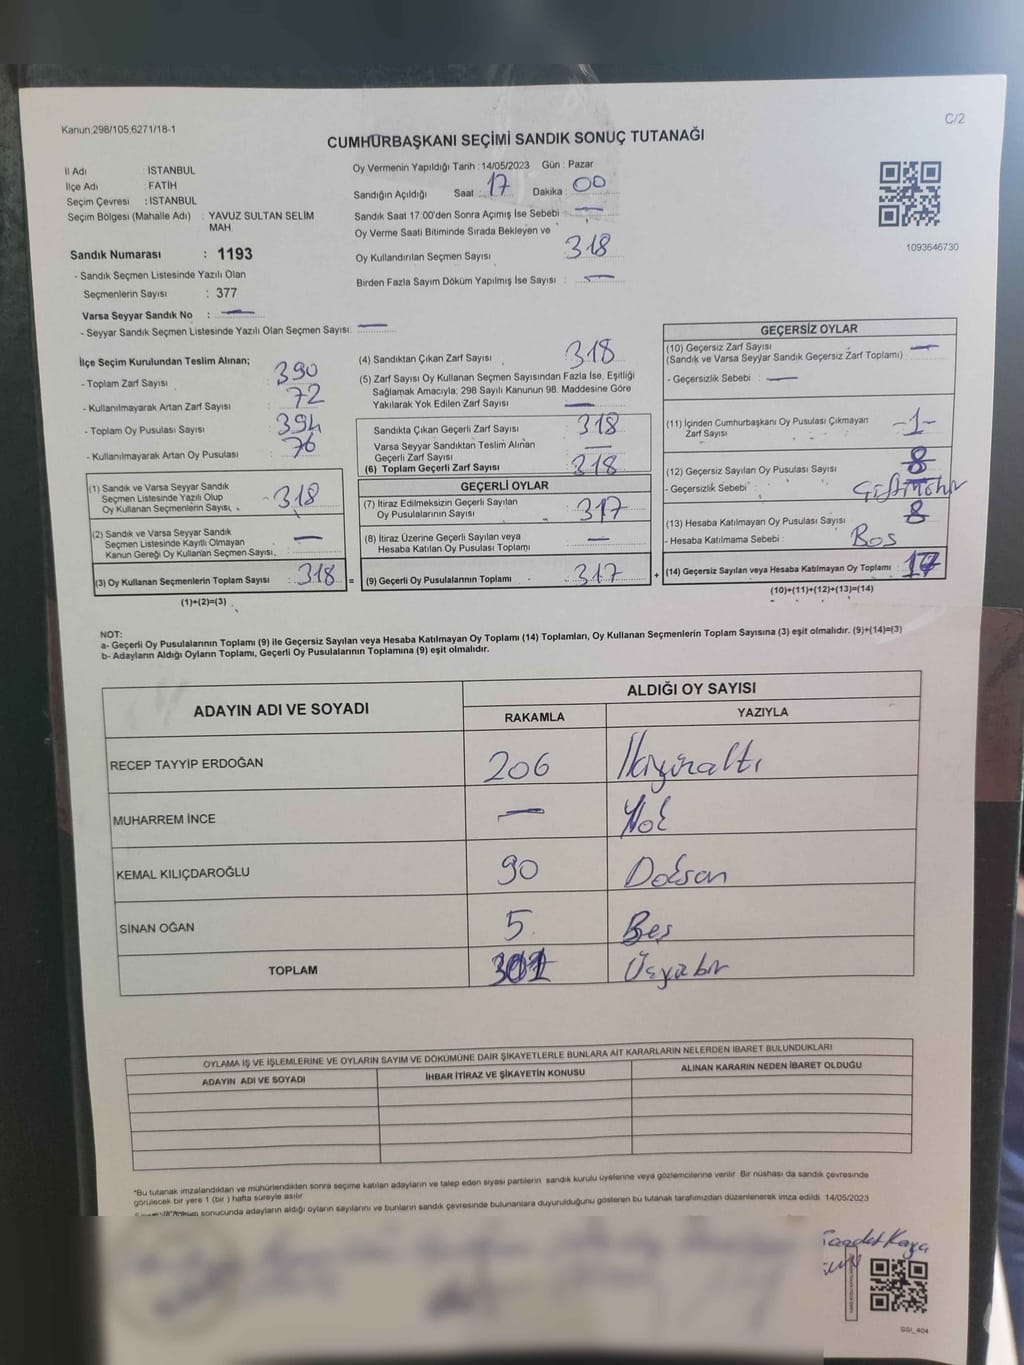 Kanun,298/105,6271/18-1
C/2
CUMHURBAŞKANI SEÇİMİ SANDIK SONUÇ TUTANAĞI
İl Adı : İSTANBUL
İlçe Adı : FATİH
Seçim Çevresi : İSTANBUL
Seçim Bölgesi (Mahalle Adı) : YAVUZ SULTAN SELİM MAH
Sandık Numarası : 1193
- Sandık Seçmen Listesinde Yazılı Olan
Seçmenlerin Sayısı : 377
Varsa Seyyar Sandık No : —
- Seyyar Sandık Seçmen Listesinde Yazılı Olan Seçmen Sayısı: —
Oy Vermenin Yapıldığı Tarih : 14/05/2023 Gün : Pazar
Sandığın Açıldığı Saat : 17 Dakika : 00
Sandık Saat 17.00'den Sonra Açımış İse Sebebi : —
Oy Verme Saati Bitiminde Sırada Bekleyen ve
Oy Kullandırılan Seçmen Sayısı : 318
Birden Fazla Sayım Döküm Yapılmış İse Sayısı : —
1093646730
İlçe Seçim Kurulundan Teslim Alınan;
- Toplam Zarf Sayısı : 390
- Kullanılmayarak Artan Zarf Sayısı : 72
- Toplam Oy Pusulası Sayısı : 394
- Kullanılmayarak Artan Oy Pusulası : 76
(1) Sandık ve Varsa Seyyar Sandık
Seçmen Listesinde Yazılı Olup
Oy Kullanan Seçmenlerin Sayısı, 318
(2) Sandık ve Varsa Seyyar Sandık
Seçmen Listesinde Kayıtlı Olmayan
Kanun Gereği Oy Kullanan Seçmen Sayısı, —
(3) Oy Kullanan Seçmenlerin Toplam Sayısı : 318 =
(1)+(2)=(3)
(4) Sandıktan Çıkan Zarf Sayısı : 318
(5) Zarf Sayısı Oy Kullanan Seçmen Sayısından Fazla İse, Eşitliği
Sağlamak Amacıyla; 298 Sayılı Kanunun 98. Maddesine Göre
Yakılarak Yok Edilen Zarf Sayısı : —
Sandıkta Çıkan Geçerli Zarf Sayısı : 318
Varsa Seyyar Sandıktan Teslim Alınan
Geçerli Zarf Sayısı : —
(6) Toplam Geçerli Zarf Sayısı : 318
GEÇERLİ OYLAR
(7) İtiraz Edilmeksizin Geçerli Sayılan
Oy Pusulalarının Sayısı : 317
(8) İtiraz Üzerine Geçerli Sayılan veya
Hesaba Katılan Oy Pusulası Toplamı : —
(9) Geçerli Oy Pusulalarının Toplamı : 317 +
GEÇERSİZ OYLAR
(10) Geçersiz Zarf Sayısı : —
(Sandık ve Varsa Seyyar Sandık Geçersiz Zarf Toplamı)
- Geçersizlik Sebebi : —
(11) İçinden Cumhurbaşkanı Oy Pusulası Çıkmayan
Zarf Sayısı : -1-
(12) Geçersiz Sayılan Oy Pusulası Sayısı : 8
- Geçersizlik Sebebi :
(13) Hesaba Katılmayan Oy Pusulası Sayısı : 8
- Hesaba Katılmama Sebebi : Boş
(14) Geçersiz Sayılan veya Hesaba Katılmayan Oy Toplamı : 17
(10)+(11)+(12)+(13)=(14)
NOT:
a- Geçerli Oy Pusulalarının Toplamı (9) ile Geçersiz Sayılan veya Hesaba Katılmayan Oy Toplamı (14) Toplamları, Oy Kullanan Seçmenlerin Toplam Sayısına (3) eşit olmalıdır. (9)+(14)=(3)
b- Adayların Aldığı Oyların Toplamı, Geçerli Oy Pusulalarının Toplamına (9) eşit olmalıdır.
ADAYIN ADI VE SOYADI ALDIĞI OY SAYISI
RAKAMLA YAZIYLA
RECEP TAYYİP ERDOĞAN 206 İkiyüzaltı
MUHARREM İNCE — Yok
KEMAL KILIÇDAROĞLU 90 Doksan
SİNAN OĞAN 5 Beş
TOPLAM 301 Üçyüzbir
OYLAMA İŞ VE İŞLEMLERİNE VE OYLARIN SAYIM VE DÖKÜMÜNE DAİR ŞİKAYETLERLE BUNLARA AİT KARARLARIN NELERDEN İBARET BULUNDUKLARI
ADAYIN ADI VE SOYADI İHBAR İTİRAZ VE ŞİKAYETİN KONUSU ALINAN KARARIN NEDEN İBARET OLDUĞU
*Bu tutanak imzalandıktan ve mühürlendikten sonra seçime katılan adayların ve talep eden siyasi partilerin sandık kurulu üyelerine veya gözlemcilerine verilir. Bir nüshası da sandık çevresinde
görülecek bir yere 1 (bir) hafta süreyle asılır
sonucunda adayların aldığı oyların sayılarını ve bunların sandık çevresinde bulunanlara duyurulduğunu gösteren bu tutanak tarafımızdan düzenlenerek imza edildi. 14/05/2023
Saadet Kaya
SSI_404